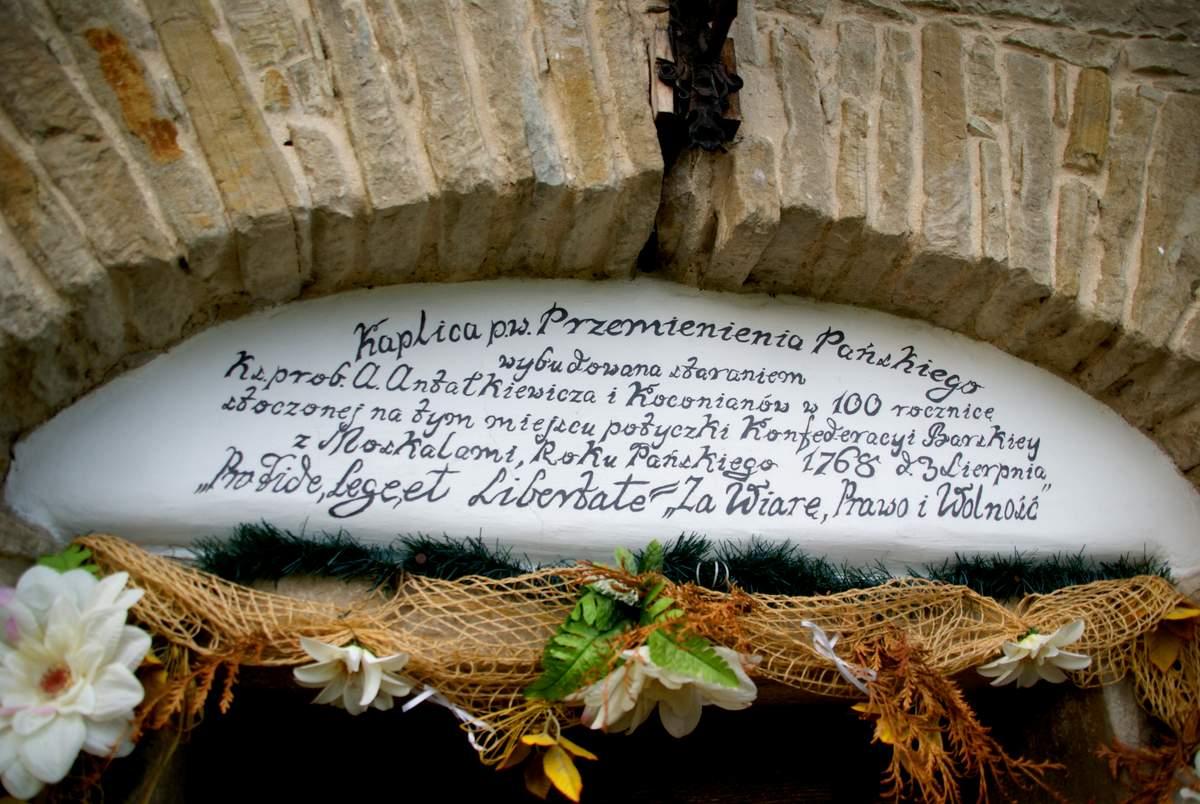 Kaplica p.w. Przemienienia Pańskiego
wybudowana staraniem
Ks. prob. A. Antałkiewicza i Koconianów w 100 rocznicę
stoczonej na tym miejscu potyczki Konfederacyi Barskiey
z Moskalami, Roku Pańskiego 1768 d. 3 Sierpnia
„Pro Fide, Lege, et Libertate" = „Za Wiarę, Prawo i Wolność"